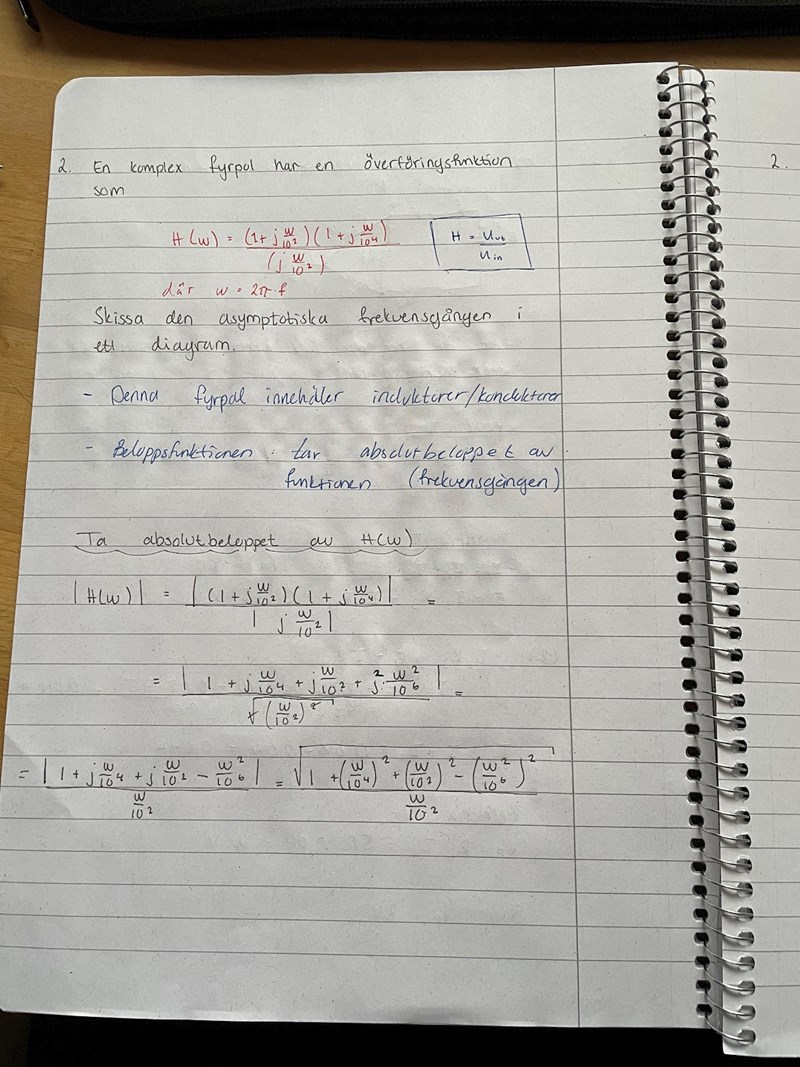 2. En komplex fyrpol har en överföringsfunktion
som
H(w) = (1+j w/10²)(1+j w/10⁴) / (j w/10²)
H = Uut / Uin
där w = 2π·f
Skissa den asymptotiska frekvensgången i
ett diagram.
- Denna fyrpol innehåler induktorer/konduktorer
- Beloppsfunktionen tar absolutbeloppet av
funktionen (frekvensgången)
Ta absolutbeloppet av H(w)
|H(w)| = |(1+j w/10²)(1+j w/10⁴)| / |j w/10²| =
= |1 + j w/10⁴ + j w/10² + j² · w²/10⁶| / √((w/10²)²) =
= |1 + j w/10⁴ + j w/10² - w²/10⁶| / (w/10²) = √(1 + (w/10⁴)² + (w/10²)² - (w²/10⁶)²) / (w/10²)
2.